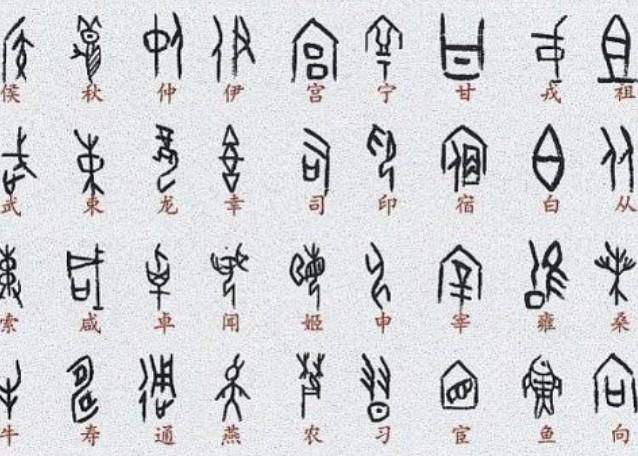 侯 秋 仲 伊 宫 宁 甘 戎 祖
武 東 龙 幸 司 印 宿 白 从
索 咸 卓 闻 姬 申 宰 雍 桑
牛 寿 通 燕 农 习 宦 鱼 向